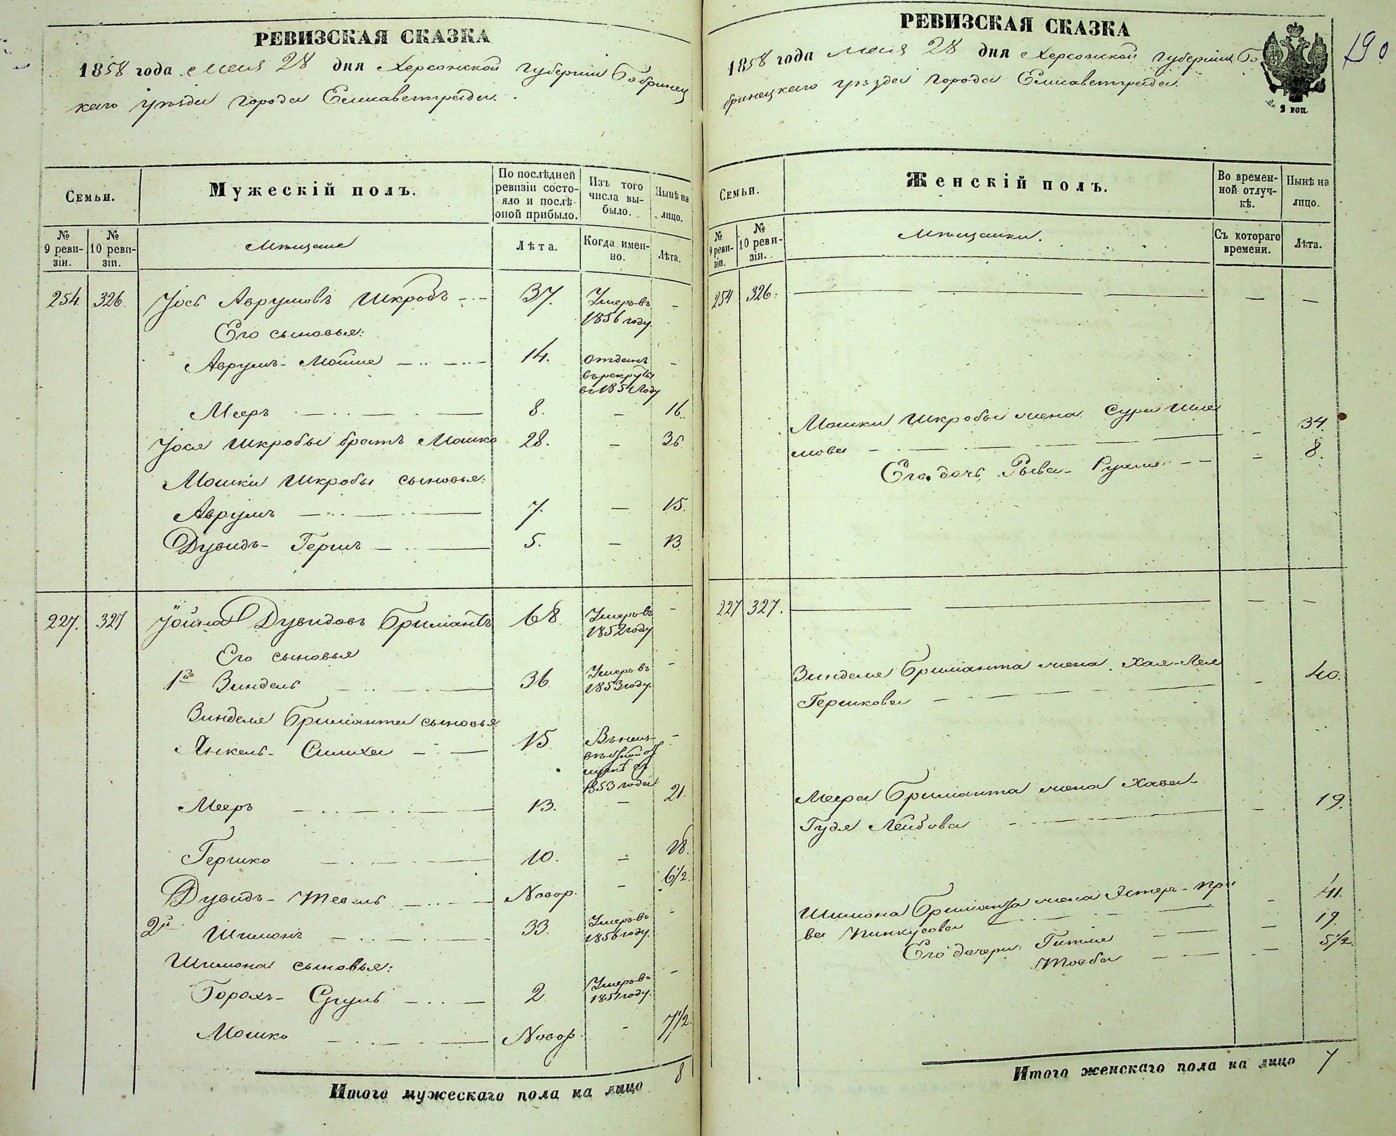 РЕВИЗСКАЯ СКАЗКА
1858 года Мая 28 дня Херсонской губернии Бобринец
каго уѣзда города Елисаветграда.
Семьи.
Мужескій полъ.
По послѣдней ревизіи состояло и послѣ оной прибыло.
Изъ того числа выбыло.
Нынѣ на лицо.
№ 9 ревизіи.
№ 10 ревизіи.
Мѣщане
Лѣта.
Когда именно.
Лѣта.
254 326 Іось Аврумовъ Шкробъ 37. Умеръ въ 1856 году. –
Его сыновья:
Аврумъ-Мойше 14. отданъ въ рекруты в 1851 году –
Мееръ 8. – 16.
Іося Шкробы братъ Мошко 28. – 36
Мошки Шкробы сыновья:
Аврумъ 7. – 15.
Дувидъ-Гершъ 5. – 13
227. 327 Іойна Дувидовъ Бриліантъ 68. Умеръ въ 1852 году –
Его сыновья
1й Зиндель 36 Умеръ въ 1853 году. –
Зинделя Бриліанта сыновья
Янкель- 15 1853 года –
Мееръ 13. – 21.
Гершко 10. – 18.
Дувидъ-Тевель Новор. – 6 1/2.
2й Шимонъ 33. Умеръ въ 1856 году. –
Шимона сыновья:
Борохъ-Сруль 2 Умеръ в 1851 году. –
Мошко Новор. – 7 1/2
Итого мужескаго пола на лицо 8
РЕВИЗСКАЯ СКАЗКА
190
1858 года Мая 28 дня Херсонской губерніи Бо
бринецкаго уѣзда города Елисаветграда.
2 коп.
Семьи.
Женскій полъ.
Во временной отлучкѣ.
Нынѣ на лицо.
№ 9 ревизіи.
№ 10 ревизія.
Мѣщанки.
Съ котораго времени.
Лѣта.
254 326. – –
Мошки Шкробы жена Сура Шле
мова – 34.
Его дочь Рыва-Рухля – 8.
227 327. – –
Зинделя Бриліанта жена Хая-Лея
Гершкова – 40.
Меера Бриліанта жена Хава-
Гудя Лейбова – 19.
Шимона Бриліанта жена Эстеръ-При
ва Пинкусова – 41.
Его дочери: Гитля – 19.
Тоба – 5 1/2.
Итого женскаго пола на лицо 7